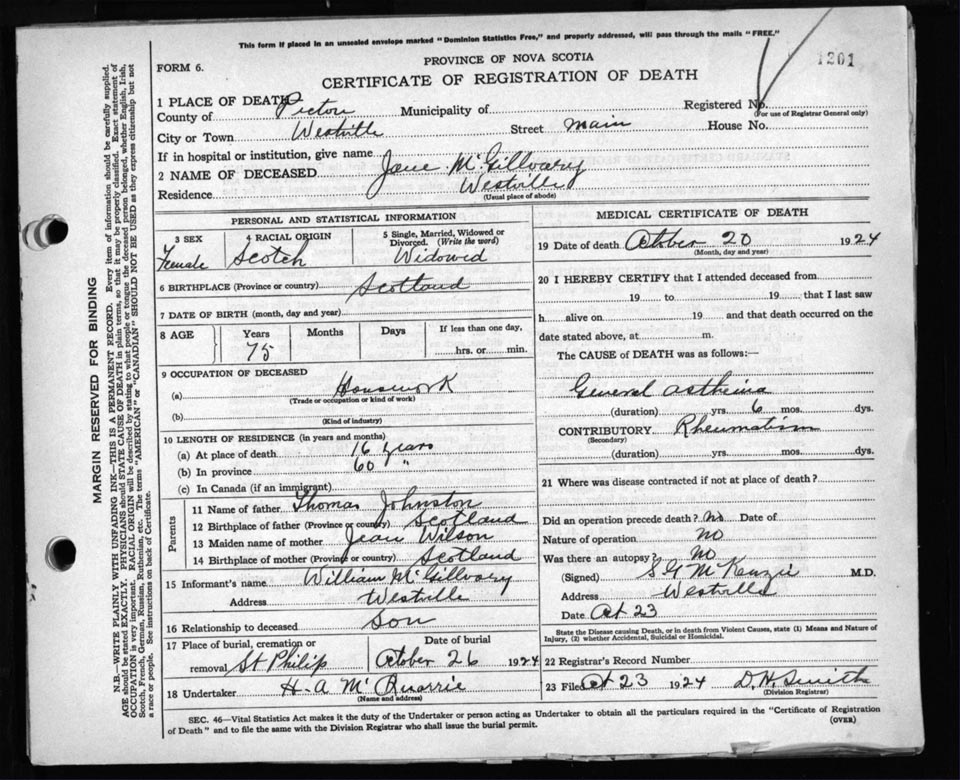 This form if placed in an unsealed envelope marked "Dominion Statistics Free," and properly addressed, will pass through the mails "FREE."
1201
PROVINCE OF NOVA SCOTIA
FORM 6.
CERTIFICATE OF REGISTRATION OF DEATH
1 PLACE OF DEATH
County of Pictou Municipality of Registered No.
(For use of Registrar General only)
City or Town Westville Street Main House No.
If in hospital or institution, give name
2 NAME OF DECEASED Jane McGillvary
Residence Westville
(Usual place of abode)
PERSONAL AND STATISTICAL INFORMATION
3 SEX Female
4 RACIAL ORIGIN Scotch
5 Single, Married, Widowed or Divorced. (Write the word) Widowed
6 BIRTHPLACE (Province or country) Scotland
7 DATE OF BIRTH (month, day and year)
8 AGE Years Months Days If less than one day,
75 hrs. or min.
9 OCCUPATION OF DECEASED
(a) Housework
(Trade or occupation or kind of work)
(b)
(Kind of industry)
10 LENGTH OF RESIDENCE (in years and months)
(a) At place of death 16 years
(b) In province 60 "
(c) In Canada (if an immigrant)
Parents
11 Name of father Thomas Johnston
12 Birthplace of father (Province or country) Scotland
13 Maiden name of mother Jean Wilson
14 Birthplace of mother (Province or country) Scotland
15 Informant's name William McGillvary
Address Westville
16 Relationship to deceased Son
17 Place of burial, cremation or removal St Philip
Date of burial October 26 1924
18 Undertaker H. A McQuarrie
(Name and address)
MEDICAL CERTIFICATE OF DEATH
19 Date of death October 20 1924
(Month, day and year)
20 I HEREBY CERTIFY that I attended deceased from
19 to 19 that I last saw
h alive on 19 and that death occurred on the
date stated above, at m.
The CAUSE of DEATH was as follows:—
General asthenia
(duration) yrs. 6 mos. dys.
CONTRIBUTORY Rheumatism
(Secondary)
(duration) yrs. mos. dys.
21 Where was disease contracted if not at place of death?
Did an operation precede death? No Date of
Nature of operation No
Was there an autopsy? No
(Signed) S G McKenzie M.D.
Address Westville
Date Oct 23
State the Disease causing Death, or in death from Violent Causes, state (1) Means and Nature of
Injury, (2) whether Accidental, Suicidal or Homicidal.
22 Registrar's Record Number
23 Filed Oct 23 1924 D. H. Smith
(Division Registrar)
SEC. 46—Vital Statistics Act makes it the duty of the Undertaker or person acting as Undertaker to obtain all the particulars required in the "Certificate of Registration
of Death" and to file the same with the Division Registrar who shall issue the burial permit. (OVER)
MARGIN RESERVED FOR BINDING
N.B.—WRITE PLAINLY WITH UNFADING INK—THIS IS A PERMANENT RECORD. Every item of information should be carefully supplied.
AGE should be stated EXACTLY. PHYSICIANS should STATE CAUSE OF DEATH in plain terms, so that it may be properly classified. Exact statement of
OCCUPATION is very important. RACIAL ORIGIN will be described by stating to what people or tongue the deceased person belonged, whether English, Irish,
Scotch, French, German, Russian, Ruthenian, etc. The terms "AMERICAN" or "CANADIAN" SHOULD NOT BE USED as they express citizenship but not
a race or people. See instructions on back of Certificate.